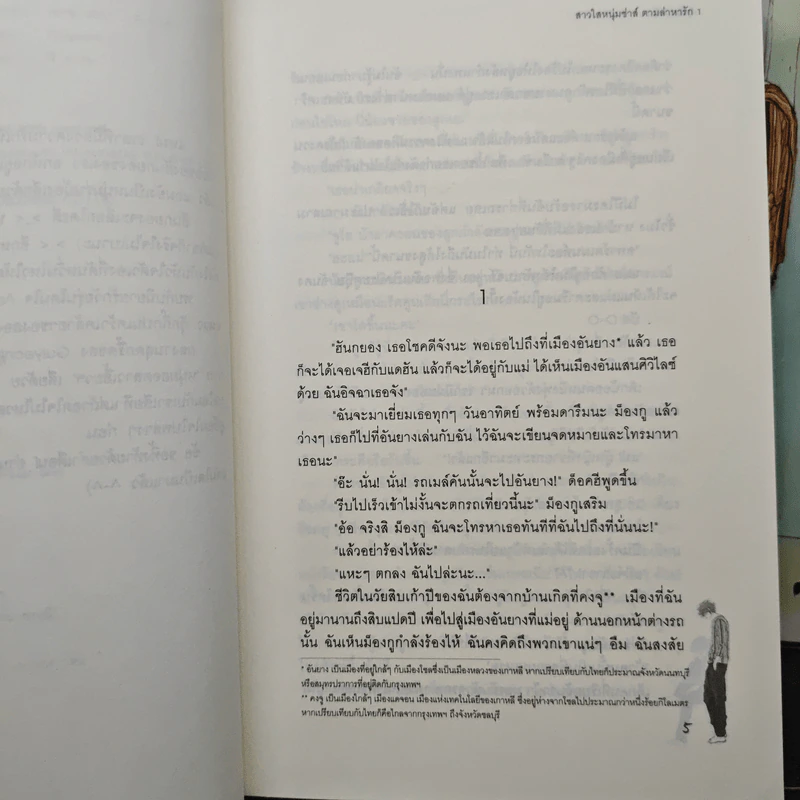 สาวใสหนุ่มซ่าส์ ตามล่าหารัก 1
1
"ฮันกยอง เธอโชคดีจังนะ พอเธอไปถึงที่เมืองอันยาง* แล้ว เธอ
ก็จะได้เจอเจฮีกับแดฮัน แล้วก็จะได้อยู่กับแม่ ได้เห็นเมืองอันแสนศิวิไลซ์
ด้วย ฉันอิจฉาเธอจัง"
"ฉันจะมาเยี่ยมเธอทุกๆ วันอาทิตย์ พร้อมดารึมนะ ม็องกู แล้ว
ว่างๆ เธอก็ไปที่อันยางเล่นกับฉัน ไว้ฉันจะเขียนจดหมายและโทรมาหา
เธอนะ"
"อ๊ะ นั่น! นั่น! รถเมล์คันนั้นจะไปอันยาง!" ด็อคฮีพูดขึ้น
"รีบไปเร็วเข้าไม่งั้นจะตกรถเที่ยวนี้นะ" ม็องกูเสริม
"อ้อ จริงสิ ม็องกู ฉันจะโทรหาเธอทันทีที่ฉันไปถึงที่นั่นนะ!"
"แล้วอย่าร้องไห้ล่ะ"
"แหะๆ ตกลง ฉันไปล่ะนะ..."
ชีวิตในวัยสิบเก้าปีของฉันต้องจากบ้านเกิดที่คงจู** เมืองที่ฉัน
อยู่มานานถึงสิบแปดปี เพื่อไปสู่เมืองอันยางที่แม่อยู่ ด้านนอกหน้าต่างรถ
นั้น ฉันเห็นม็องกูกำลังร้องไห้ ฉันคงคิดถึงพวกเขาแน่ๆ อืม ฉันสงสัย
* อันยาง เป็นเมืองที่อยู่ใกล้ๆ กับเมืองโซลซึ่งเป็นเมืองหลวงของเกาหลี หากเปรียบเทียบกับไทยก็ประมาณจังหวัดนนทบุรี
หรือสมุทรปราการที่อยู่ติดกับกรุงเทพฯ
** คงจู เป็นเมืองใกล้ๆ เมืองแดจอน เมืองแห่งเทคโนโลยีของเกาหลี ซึ่งอยู่ห่างจากโซลไปประมาณกว่าหนึ่งร้อยกิโลเมตร
หากเปรียบเทียบกับไทยก็คือไกลจากกรุงเทพฯ ถึงจังหวัดชลบุรี
5